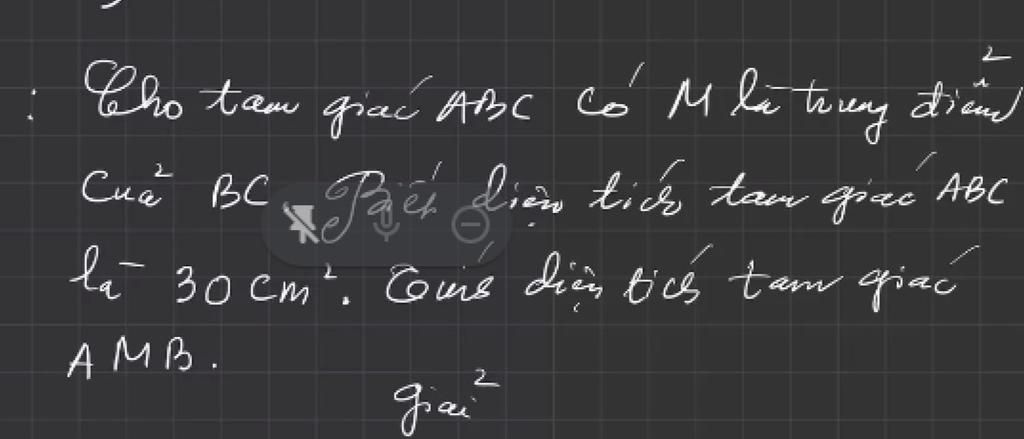 : Cho tam giác ABC có M là trung điểm
của BC Biết diện tích tam giác ABC
là 30 cm². Tính diện tích tam giác
AMB.
giải